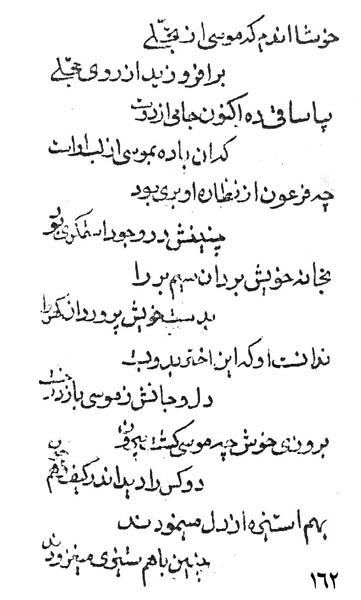 خوشا اندم که موسی از تجلّے
برافروزید از روی تجلّے
بیا ساقی ده اکنون جامی از دوست
که ان باده بموسی از لب اوست
چه فرعون از نظاره او بری بود
چنینش در وجود استمگری بود
بخانه خویش برد ان سیم بر را
بدست خویش پرورد ان
ندانست او که این اختر بدوبت
دل و جانش ز موسی باز
بروزی خوش چه موسی گشت
دو کس را دید اندر کیف هم
بهم استیزه از دل مینمودند
چنین باهم ستیزی میفزودند
١٦٢